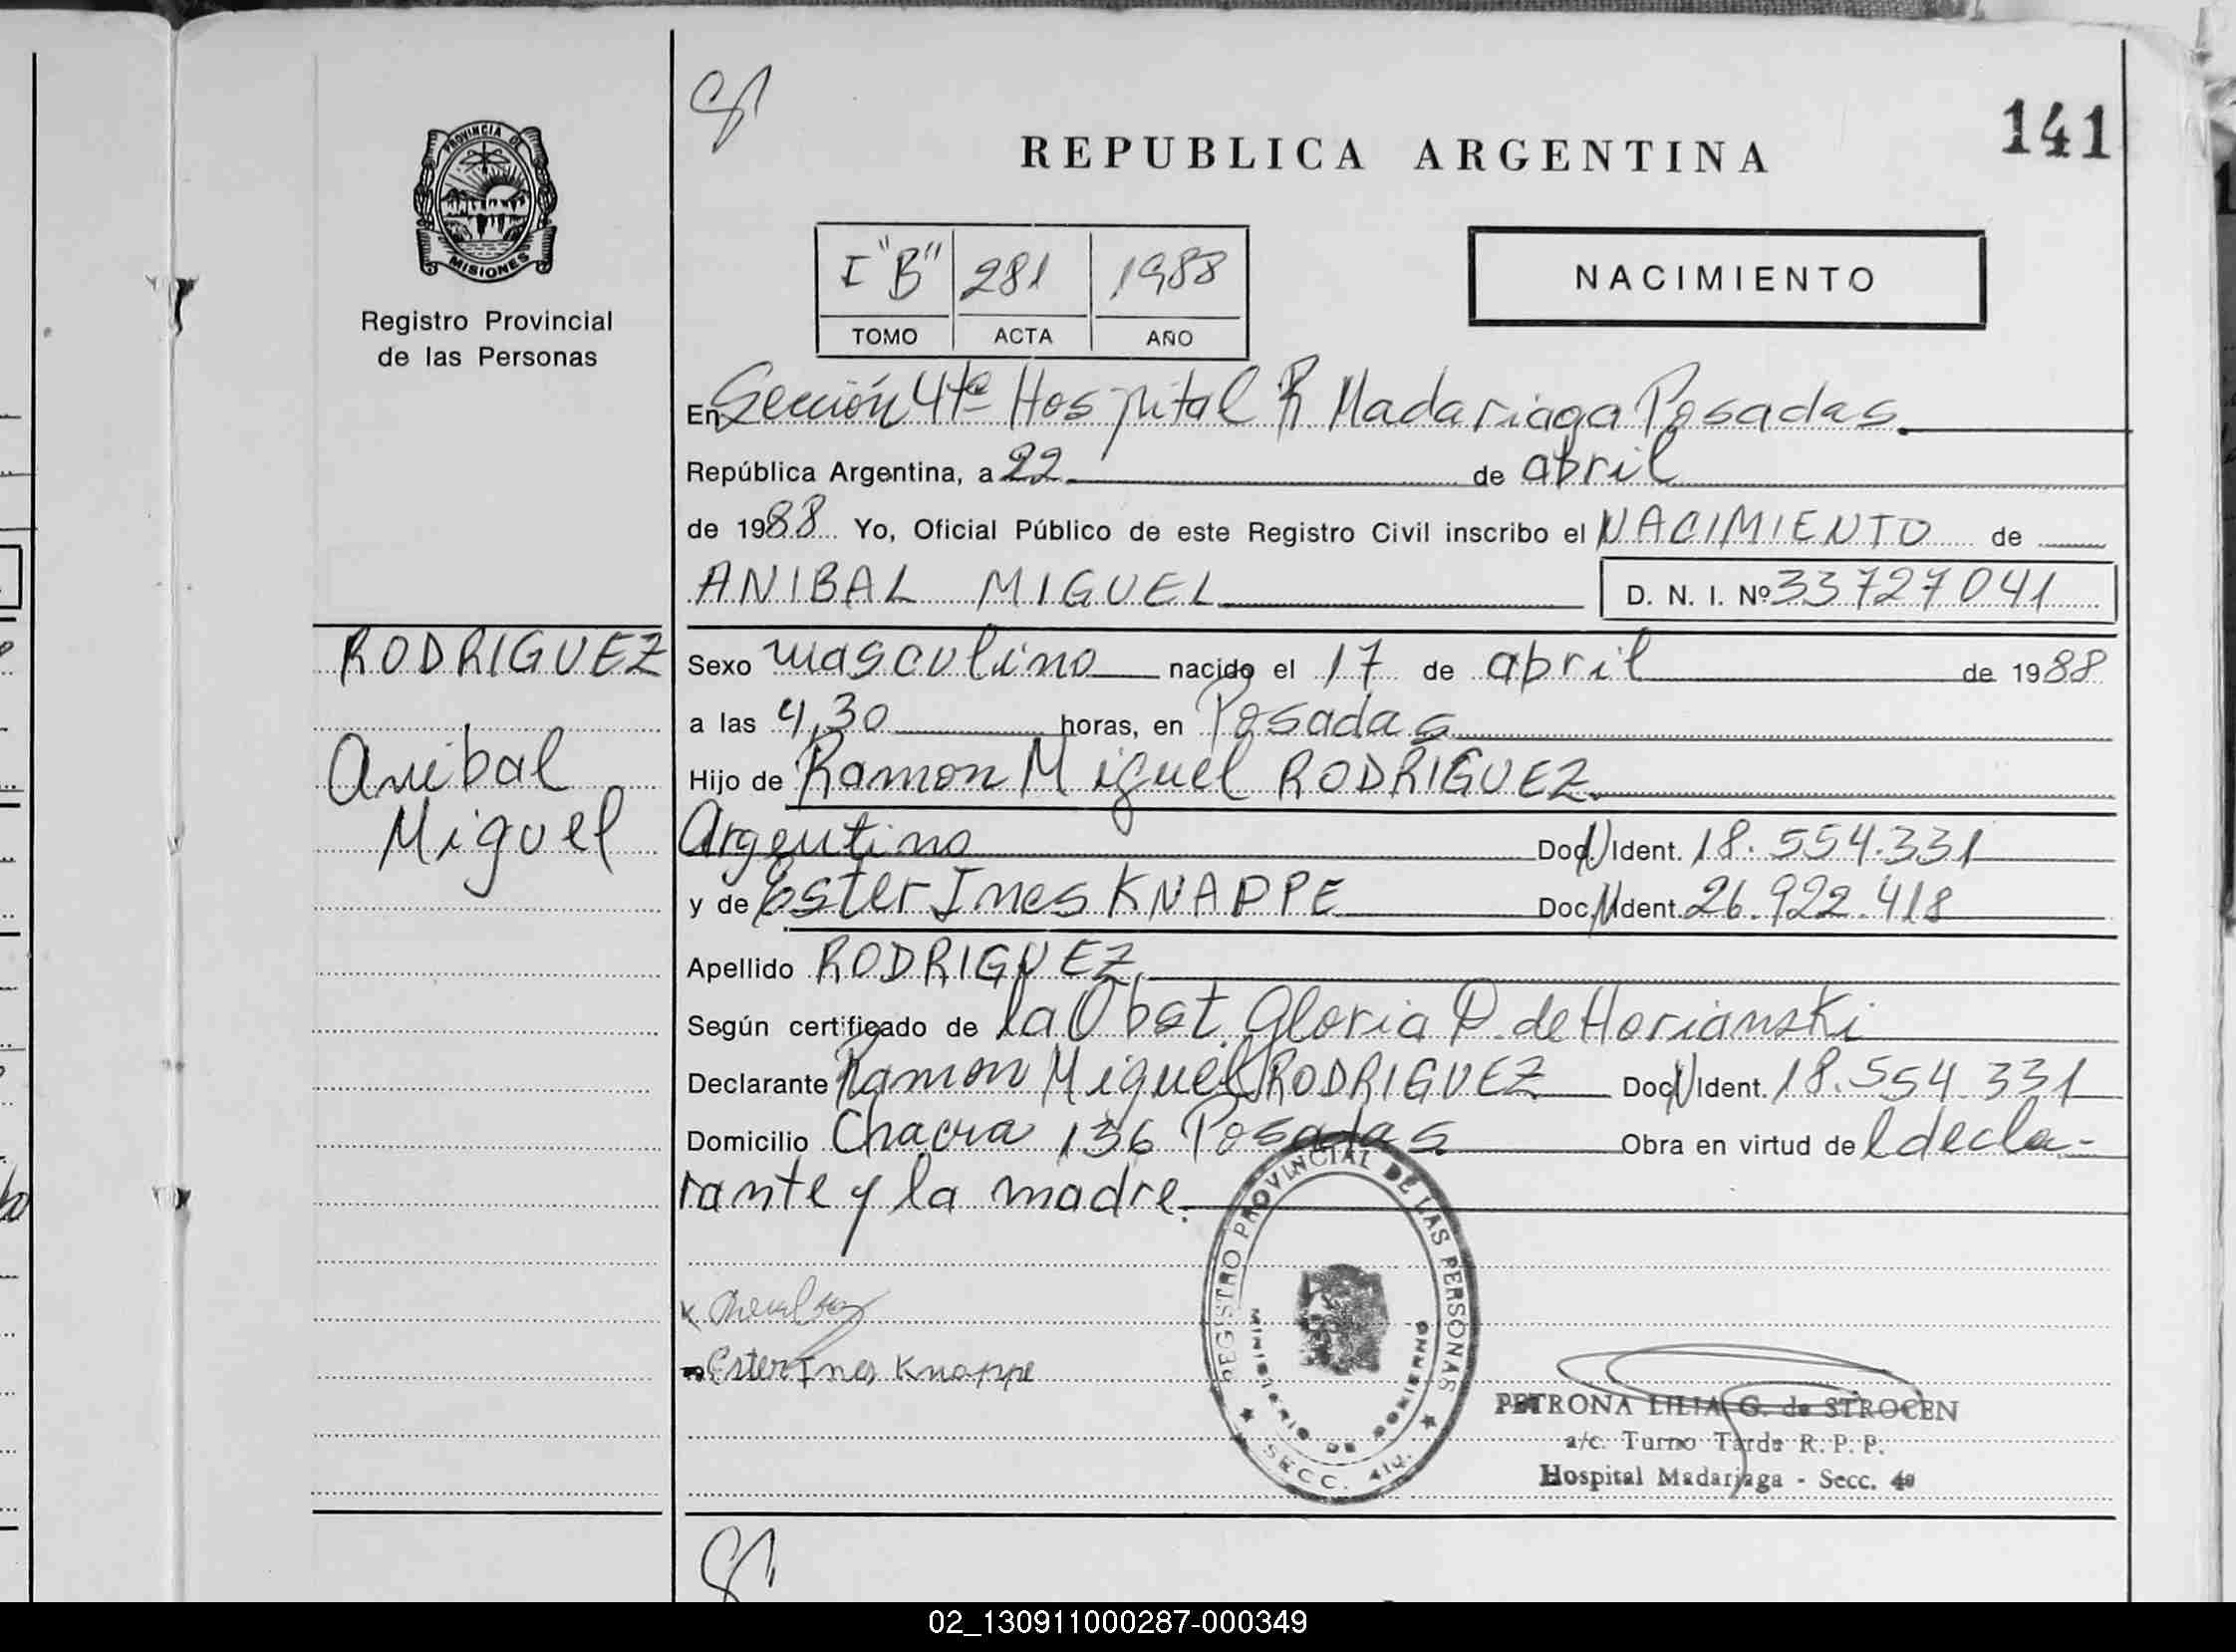 141
REPUBLICA ARGENTINA
PROVINCIA DE
MISIONES
Registro Provincial
de las Personas
I "B" 281 1988
TOMO ACTA AÑO
NACIMIENTO
En Sección 4ta Hospital R Madariaga Posadas.
República Argentina, a 22 de abril
de 1988 Yo, Oficial Público de este Registro Civil inscribo el NACIMIENTO de
ANIBAL MIGUEL D. N. I. Nº 33727041
RODRIGUEZ
Anibal
Miguel
Sexo masculino nacido el 17 de abril de 1988
a las 4,30 horas, en Posadas
Hijo de Ramon Miguel RODRIGUEZ
Argentino Doc. N Ident. 18.554.331
y de Ester Ines KNAPPE Doc. N Ident. 26.922.418
Apellido RODRIGUEZ
Según certificado de la Obst. Gloria P. de Horianski
Declarante Ramon Miguel RODRIGUEZ Doc. N Ident. 18.554.331
Domicilio Chacra 136 Posadas Obra en virtud de l decla-
rante y la madre.
REGISTRO PROVINCIAL DE LAS PERSONAS
MINISTERIO DE GOBIERNO
SECC. 4ta.
Ester Ines Knappe
PETRONA LILIA G. de STROCEN
a/c. Turno Tarde R. P. P.
Hospital Madariaga - Secc. 4a
02_130911000287-000349